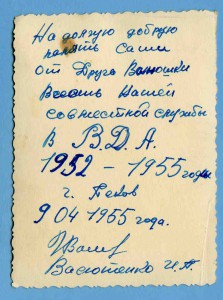 На долгую добрую
память Саши
От Друга Ванюшки
В честь Нашей
совместной службы
в В.Д.А.
1952 – 1955 годы
г. Псков
9 04 1955 года.
Васютенко И.П.